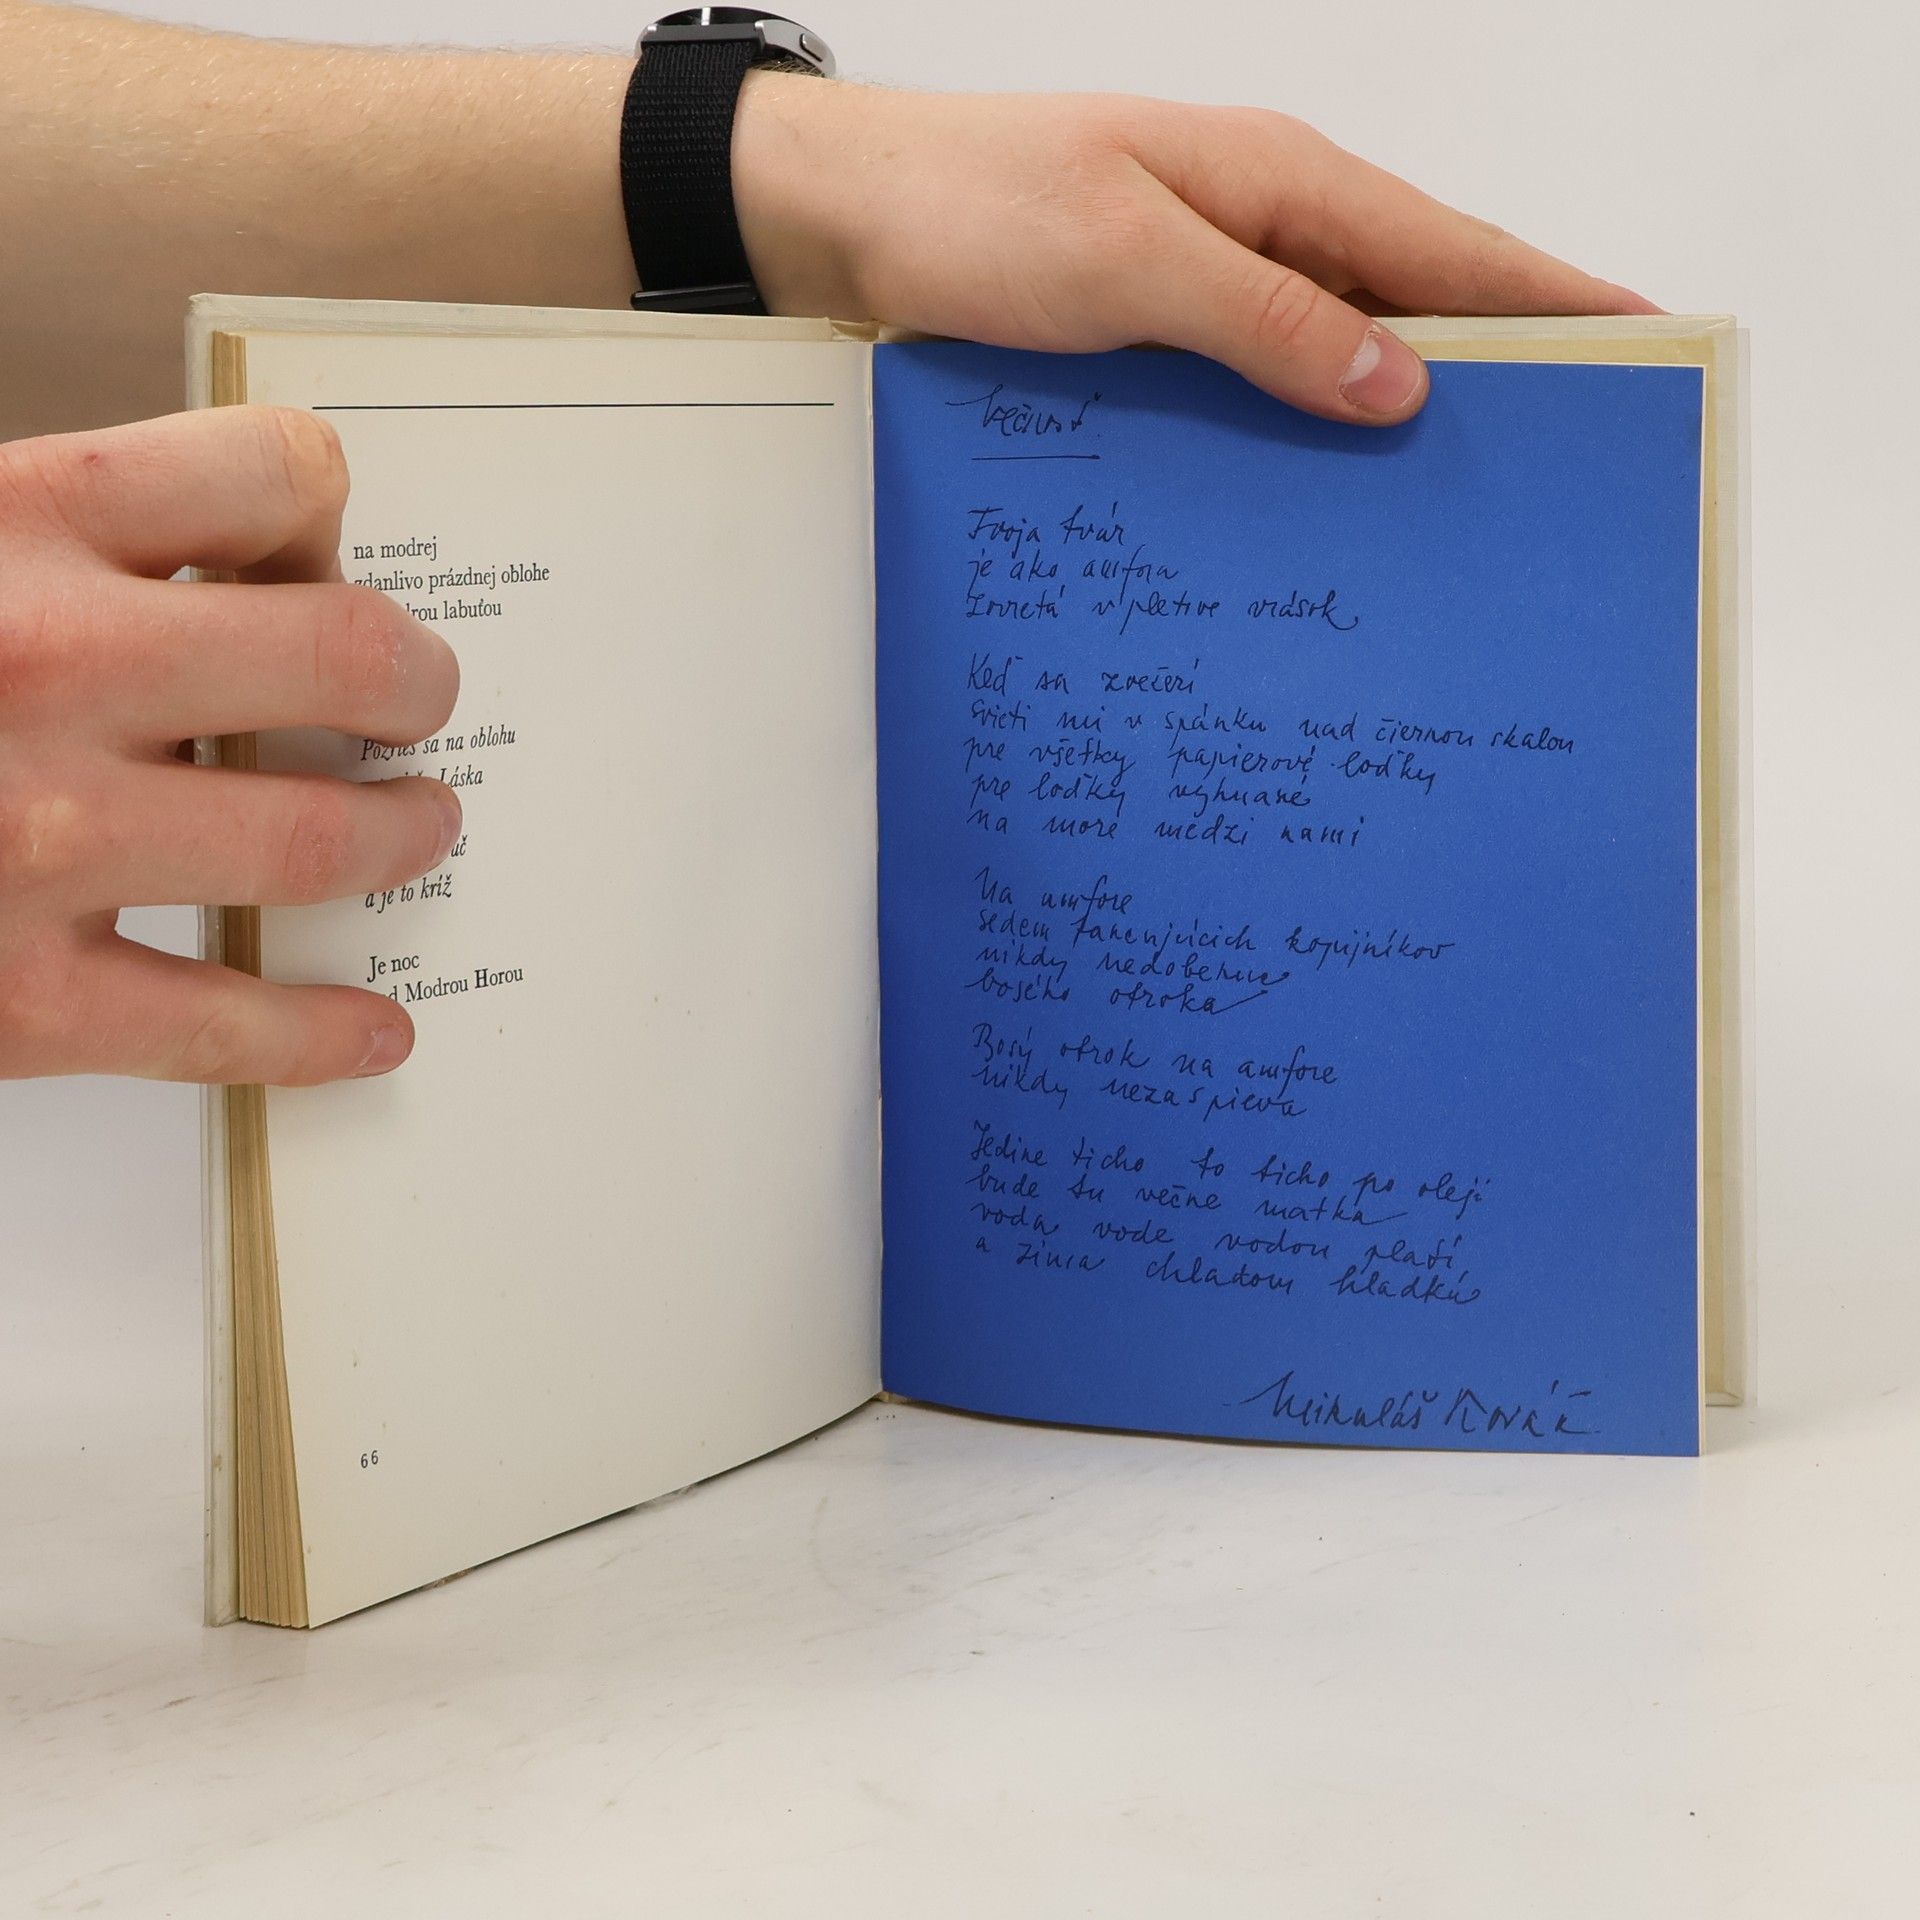 na modrej
zdanlivo prázdnej oblohe
labuťou
Pozrieš sa na oblohu
Láska
a je to kríž
Je noc
Modrou Horou
66
Večnosť
Tvoja tvár
je ako amfora
zovretá v pletive vrások
Keď sa zvečerí
svieti mi v spánku nad čiernou skalou
pre všetky papierové loďky
pre loďky vyhnané
na more medzi nami
Na amfore
sedem tancujúcich kopijníkov
nikdy nedobehne
bosého otroka
Bosý otrok na amfore
nikdy nezaspieva
Jedine ticho to ticho po oleji
bude tu večne matka
voda vode vodou platí
a zima chladom hladká
Mikuláš Kováč